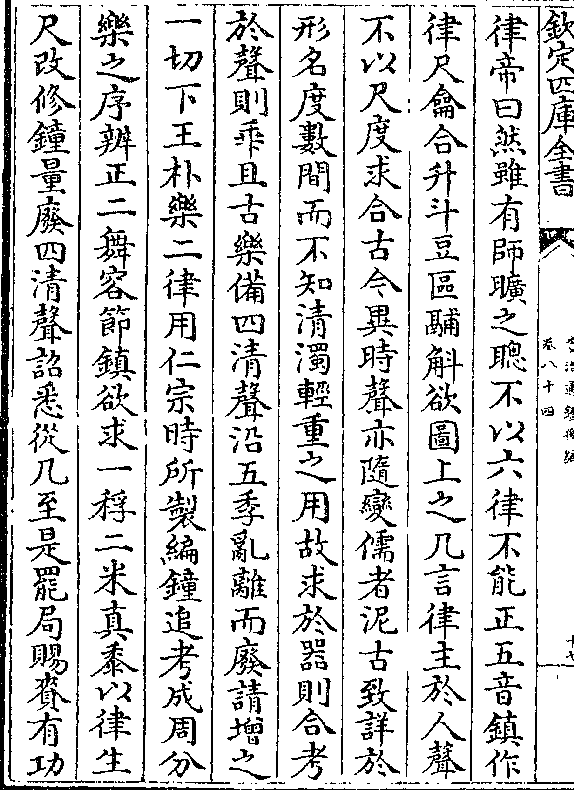 欽定四庫全書
卷八十四
律帝曰然雖有師曠之聰不以六律不能正五音鎮作
律尺龠合升斗豆區鬴斛欲圖上之几言律主於人聲
不以尺度求合古今異時聲亦隨變儒者泥古致詳於
形名度數間而不知清濁輕重之用故求於器則合考
於聲則乖且古樂備四清聲沿五季亂離而廢請增之
一切下王朴樂二律用仁宗時所製編鐘追考成周分
樂之序辨正二舞容節鎮欲求一稃二米真黍以律生
尺改修鐘量廢四清聲詔悉從几至是罷局賜賚有功